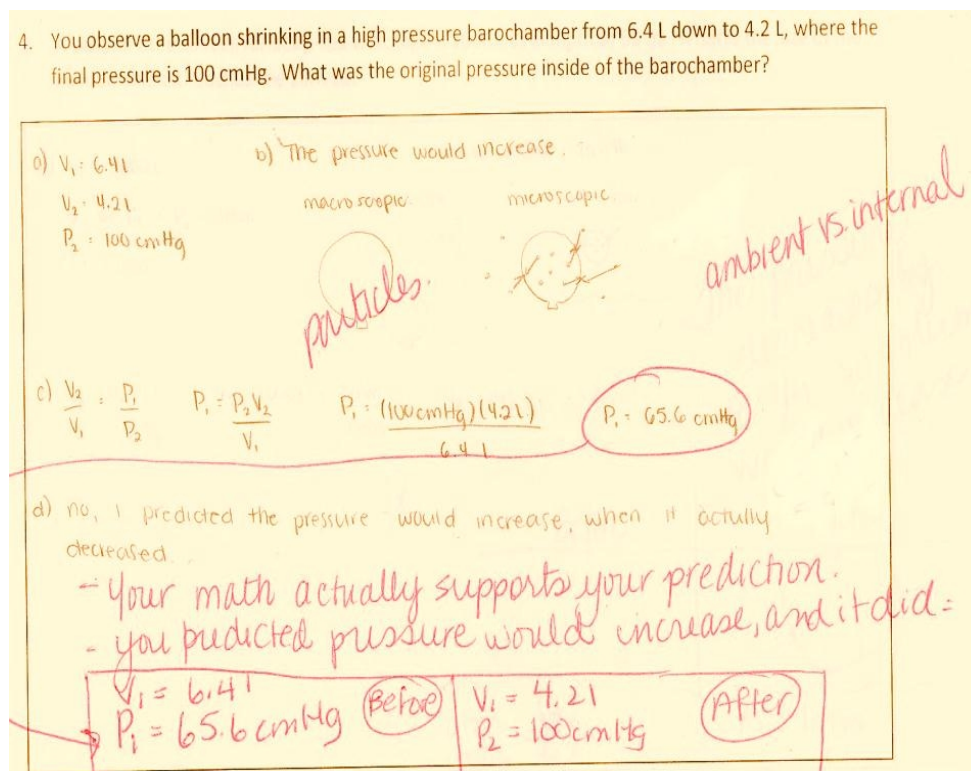 4. You observe a balloon shrinking in a high pressure barochamber from 6.4 L down to 4.2 L, where the
final pressure is 100 cmHg. What was the original pressure inside of the barochamber?
a) V₁ = 6.4 l
V₂ = 4.2 l
P₂ = 100 cmHg
b) The pressure would increase.
macroscopic
microscopic
particles.
ambient vs. internal
c) V₂/V₁ = P₁/P₂ P₁ = P₂V₂/V₁ P₁ = (100 cmHg)(4.2 l)/6.4 l P₁ = 65.6 cmHg
d) no, I predicted the pressure would increase, when it actully
decreased.
- Your math actually supports your prediction.
- you predicted pressure would increase, and it did =
V₁ = 6.4 l Before V₁ = 4.2 l After
P₁ = 65.6 cmHg P₂ = 100 cmHg